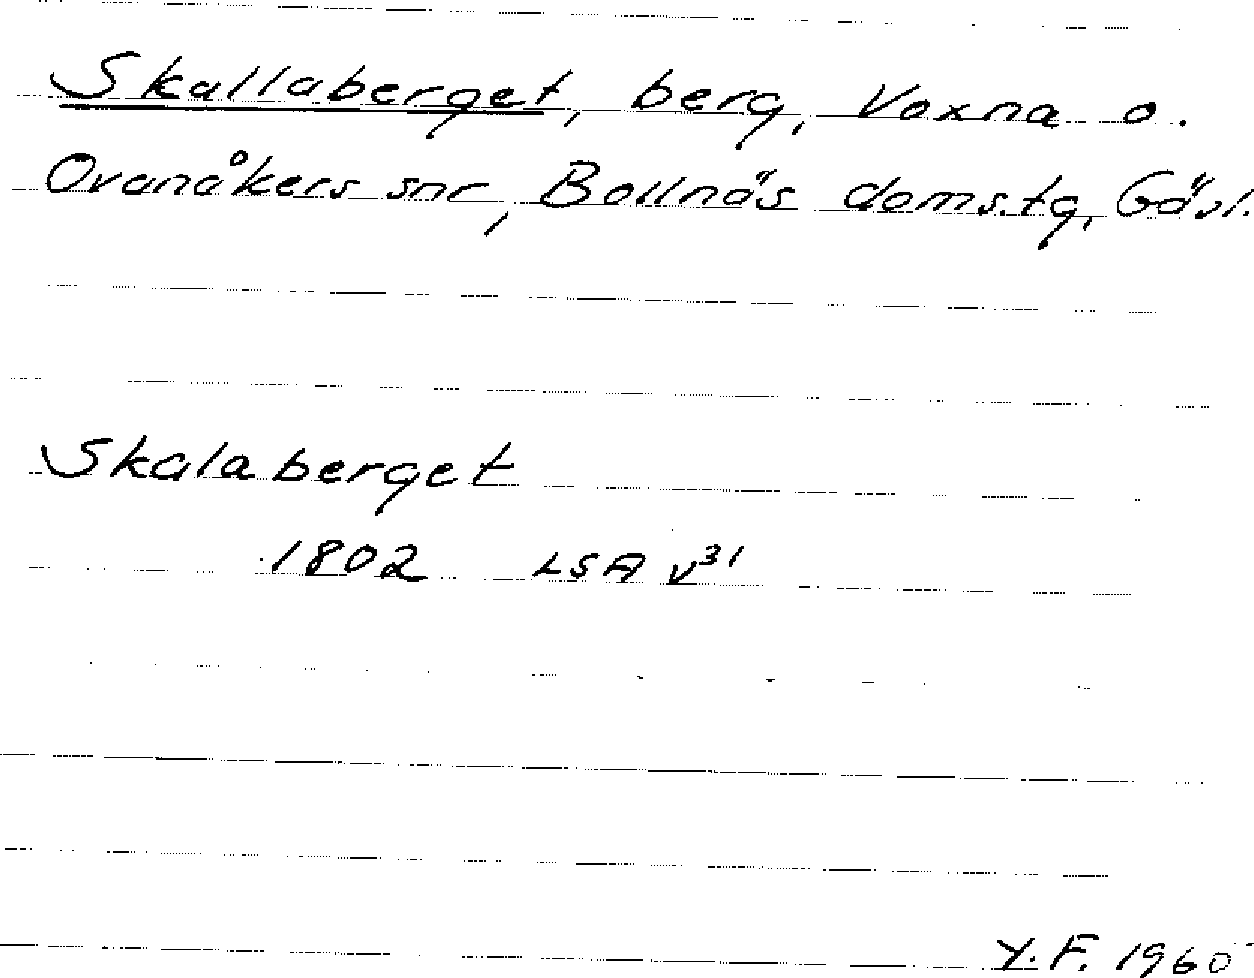 Skallaberget, berg, Voxna o.
Ovanåkers snr, Bollnäs doms.tg, Gävl.
Skalaberget
1802 LSA v31
Y.F. 1960